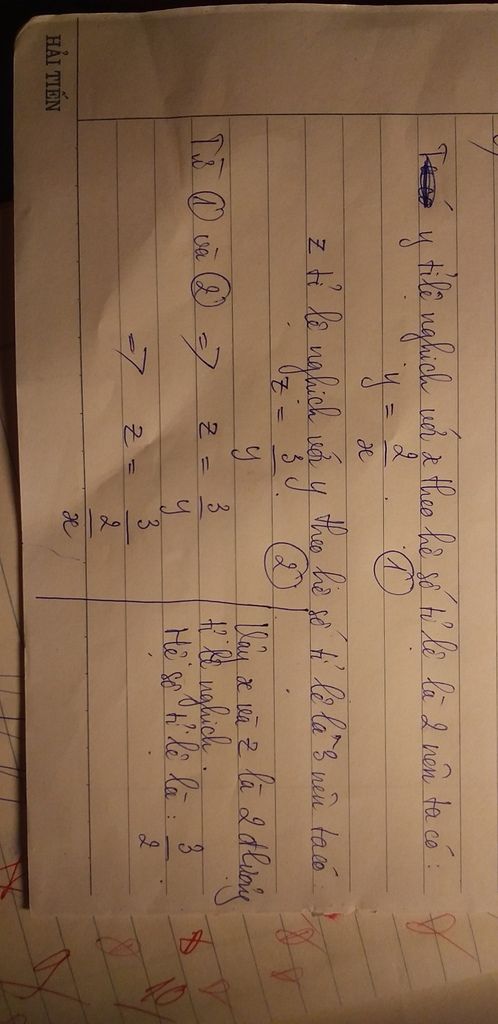 HẢI TIẾN
y tỉ lệ nghịch với x theo hệ số tỉ lệ là 2 nên ta có:
y = 2/x. ①
z tỉ lệ nghịch với y theo hệ số tỉ lệ là 3 nên ta có:
z = 3/y. ②
Từ ① và ② => z = 3/y
=> z = 3/(2/x)
Vậy x và z là 2 đ lượng
tỉ lệ nghịch.
Hệ số tỉ lệ là: 3/2.
10